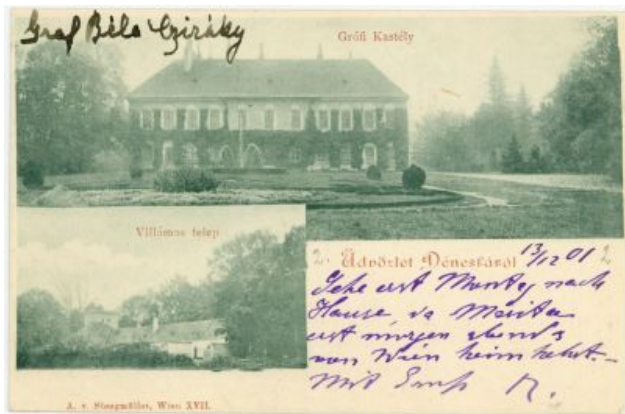 Graf Béla Cziráky
Grófi Kastély
Villámos telep
Üdvözlet Dénesfáról 13/12 01
Gehe erst Montag nach
Hause da Marita
erst morgen abends
von Wien heim kehrt.-
Mit Gruß
A. v. Stengmüller, Wien XVII.